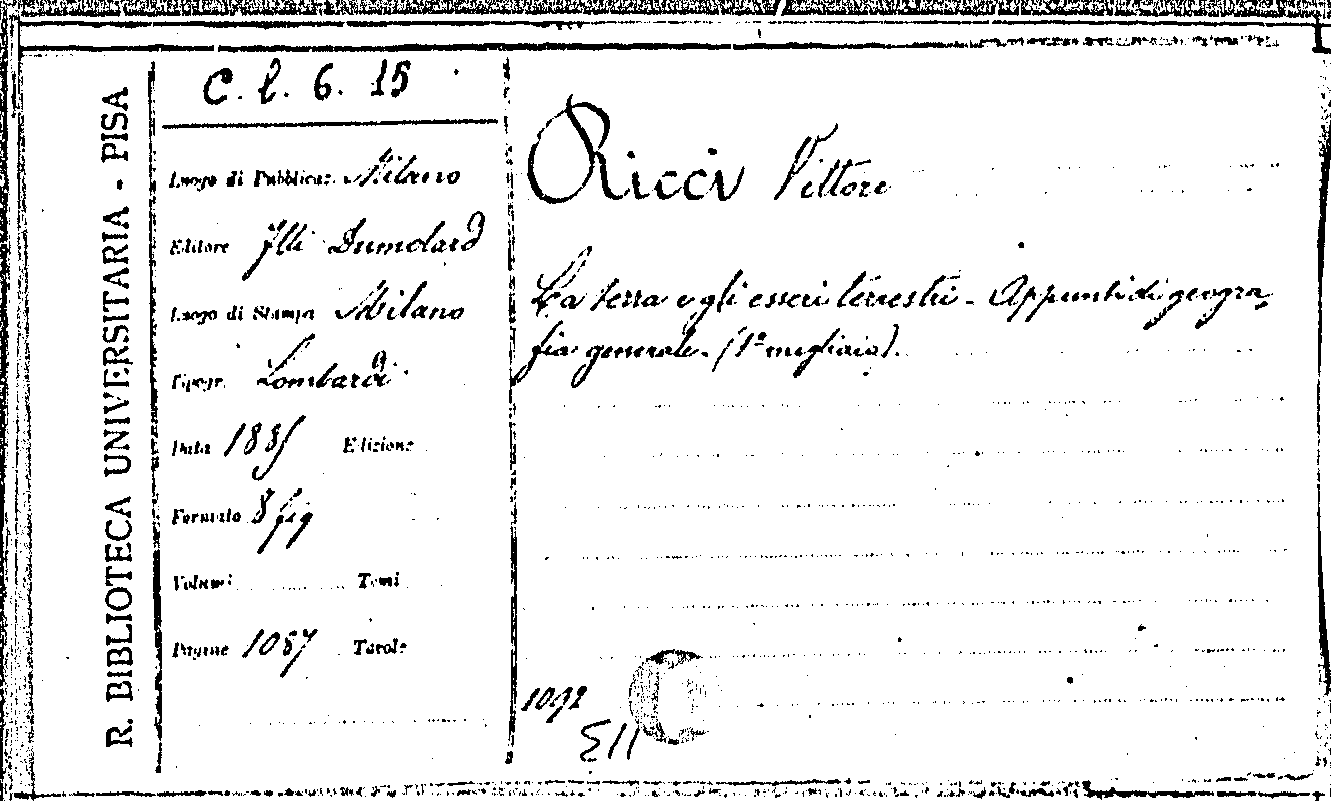 R. BIBLIOTECA UNIVERSITARIA - PISA
C. l. 6. 15
Luogo di Pubblicaz. Milano
Editore Flli Dumolard
Luogo di Stampa Milano
Tipogr. Lombardi
Data 1885 Edizione
Formato 8 fig
Volumi Tomi
Pagine 1087 Tavole
Ricci Vittore
La terra e gli esseri terrestri - Appunti di geogra
fia generale. (1º migliaio).
1092